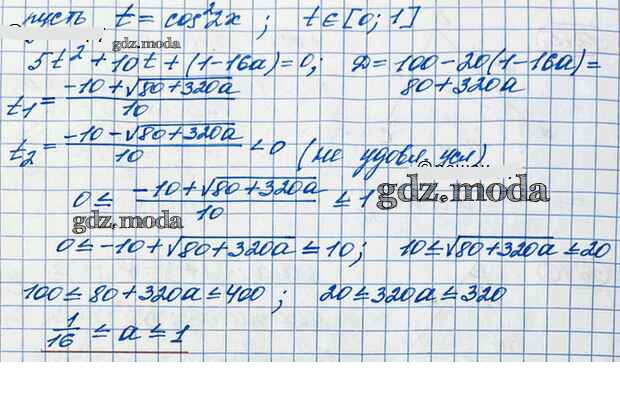 пусть t = cos²2x ; t ∈ [0; 1]
gdz.moda
5t² + 10t + (1-16a) = 0; D = 100 - 20(1-16a) =
80 + 320a
t₁ = (-10 + √(80+320a)) / 10
t₂ = (-10 - √(80+320a)) / 10 < 0 (не удовл. усл).
0 ≤ (-10 + √(80+320a)) / 10 ≤ 1
gdz.moda
gdz.moda
0 ≤ -10 + √(80+320a) ≤ 10; 10 ≤ √(80+320a) ≤ 20
100 ≤ 80 + 320a ≤ 400 ; 20 ≤ 320a ≤ 320
1/16 ≤ a ≤ 1